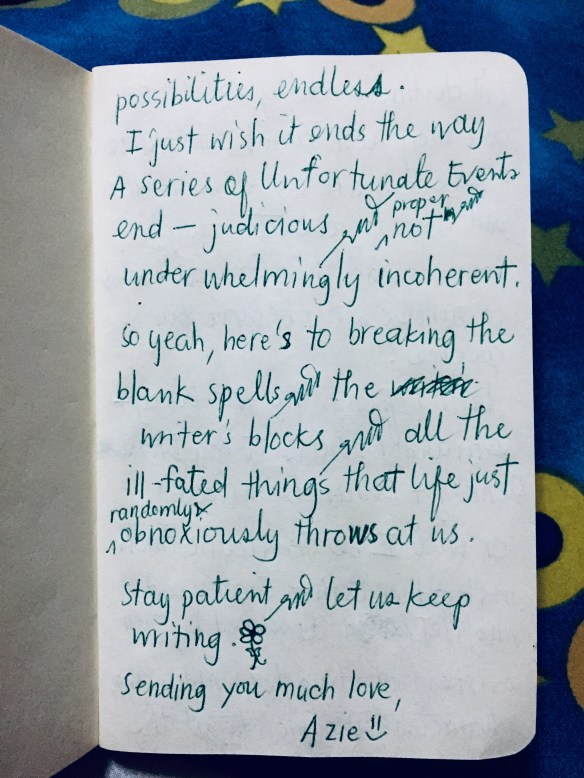 possibilities, endless.
I just wish it ends the way
A series of Unfortunate Events
end — judicious and proper not
underwhelmingly incoherent.
So yeah, here's to breaking the
blank spells and the
writer's blocks and all the
ill-fated things that life just
randomly &
obnoxiously throws at us.
Stay patient and let us keep
writing.
Sending you much love,
Azie